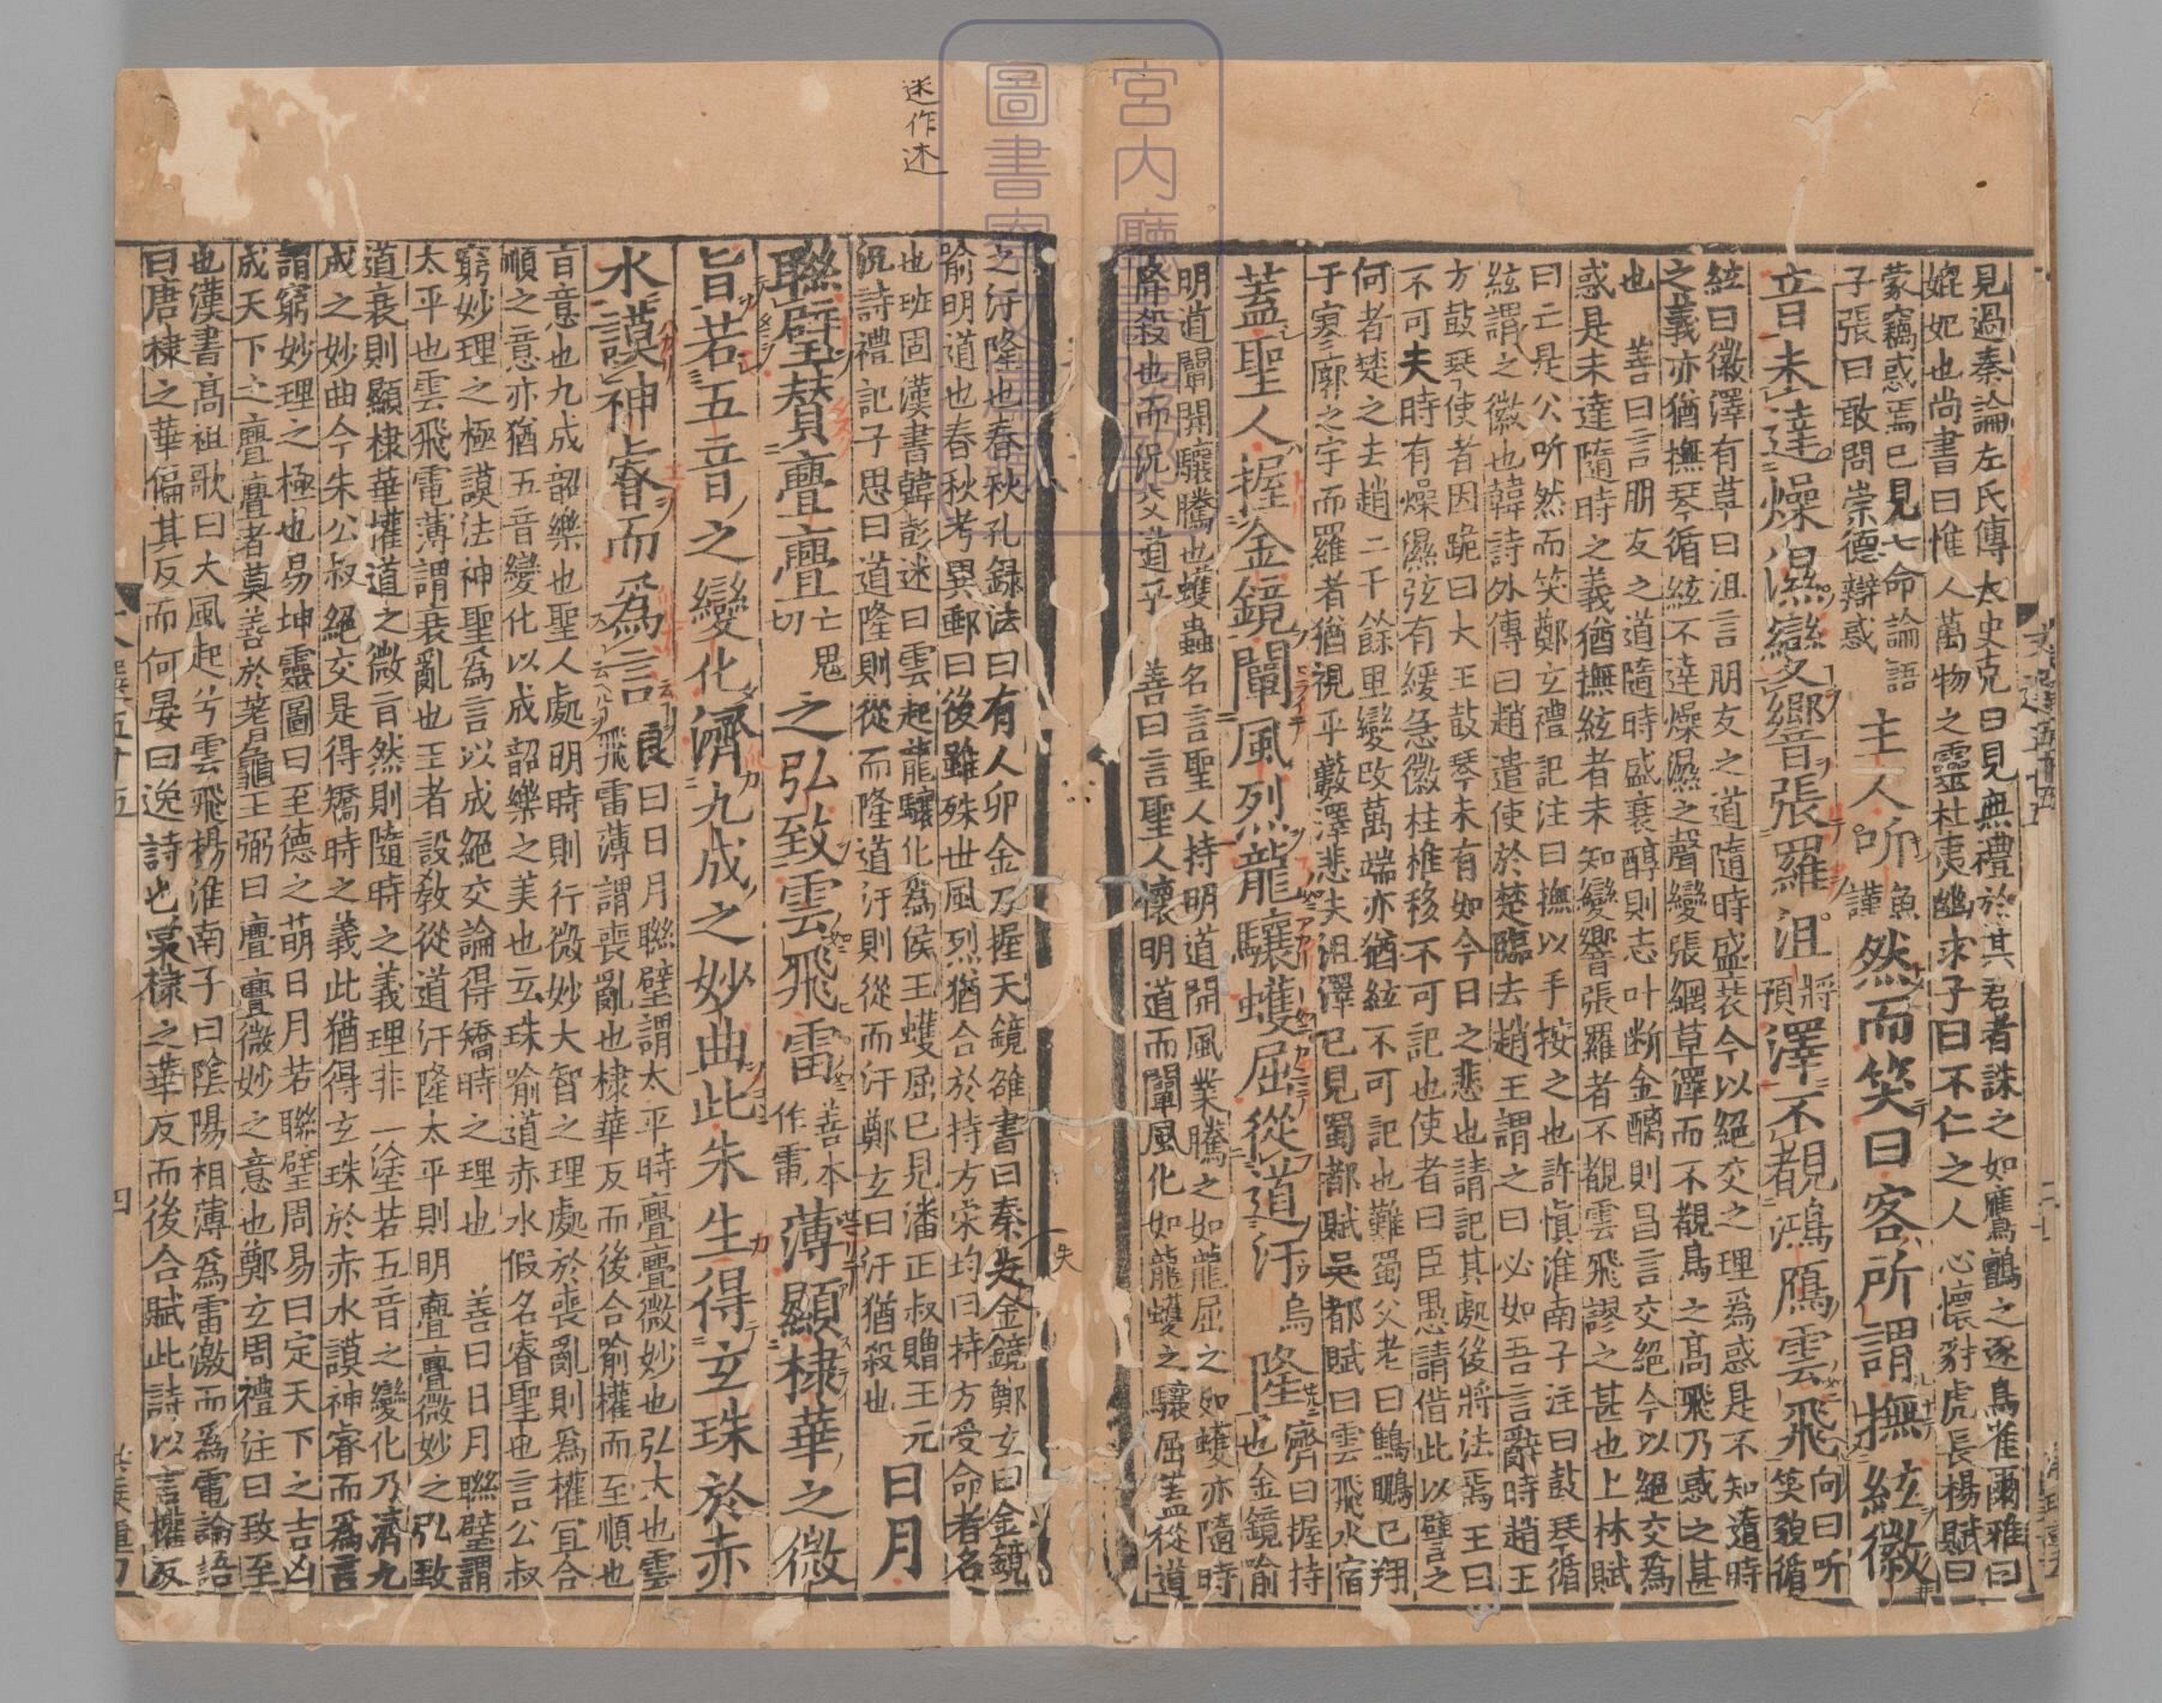 見過秦論左氏傳太史克曰見無禮於其君者誅之如鷹鸇之逐鳥雀爾雅曰
媲妃也尚書曰惟人萬物之靈杜夷幽求子曰不仁之人心懷豺虎長楊賦曰
蒙竊惑焉已見七命論語
子張曰敢問崇德辯惑
主人听魚謹然而笑曰客所謂撫絃徽
音未達燥濕變響張羅沮將預澤不覩鴻鴈雲飛向曰听笑貌循
絃曰徽澤有草曰沮言朋友之道隨時盛衰今以絕交之理爲惑是不知隨時
之義亦猶撫琴循絃不達燥濕之聲變張網草澤而不覩鳥之高飛乃惑之甚
也 善曰言朋友之道隨時盛衰醇則志叶断金醨則昌言交絕今以絕交爲
惑是未達隨時之義猶撫絃者未知變響張羅者不覩雲飛謬之甚也上林賦
曰亡是公听然而笑鄭玄禮記注曰撫以手按之也許慎淮南子注曰鼓琴循
絃謂之徽也韓詩外傳曰趙遣使於楚臨去趙王謂之曰必如吾言辭時趙王
方鼓琴使者因跪曰大王鼓琴未有如今日之悲也請記其處後將法焉王曰
不可夫時有燥濕弦有緩急徽柱推移不可記也使者曰臣愚請借此以譬之
何者楚之去趙二千餘里變改萬端亦猶絃不可記也難蜀父老曰鷦鵬已翔
于寥廓之宇而羅者猶視乎藪澤悲夫沮澤已見蜀都賦吳都賦曰雲飛水宿
蓋聖人握金鏡闡風烈龍驤蠖屈從道汙烏隆濟曰握持也金鏡喻
明道闡開驤騰也蠖蟲名言聖人持明道開風業騰之如龍屈之如蠖亦隨時
降殺也而況父道乎 善曰言聖人懷明道而闡風化如龍蠖之驤屈蓋從道
之汙隆也春秋孔録法曰有人卯金刀握天鏡雒書曰秦失金鏡鄭玄曰金鏡
喻明道也春秋考異郵曰後雖殊世風烈猶合於持方宋均曰持方受命者名
也班固漢書韓彭述曰雲起龍驤化爲侯王蠖屈已見潘正叔贈王元
況詩禮記子思曰道隆則從而隆道汙則從而汙鄭玄曰汙猶殺也
日月
聯璧賛亹亹亡鬼切之弘致雲飛雷善本作電薄顯棣華之微
旨若五音之變化濟九成之妙曲此朱生得玄珠於赤
水謨神睿而爲言良曰日月聯璧謂太平時亹亹微妙也弘大也雲
飛雷薄謂喪亂也棣華反而後合喻權而至順也
音意也九成韶樂也聖人處明時則行微妙大智之理處於喪亂則爲權宜合
順之意亦猶五音變化以成韶樂之美也玄珠喻道赤水假名睿聖也言公叔
窮妙理之極謨法神聖爲言以成絕交論得矯時之理也 善曰日月聯璧謂
太平也雲飛電薄謂衰亂也王者設教從道汙隆太平則明亹亹微妙之弘致
道衰則顯棣華權道之微旨然則隨時之義理非一塗若五音之變化乃濟九
成之妙曲今朱公叔絕交是得矯時之義此猶得玄珠於赤水謨神睿而爲言
謂窮妙理之極也易坤靈圖曰至德之萌日月若聯璧周易曰定天下之吉凶
成天下之亹亹者莫善於蓍龜王弼曰亹亹微妙之意也鄭玄周禮注曰致至
也漢書高祖歌曰大風起兮雲飛楊淮南子曰陰陽相薄爲雷激而爲電論語
曰唐棣之華偏其反而何晏曰逸詩也棠棣之華反而後合賦此詩以言權反
迷作述
宮内廳
圖書寮
四